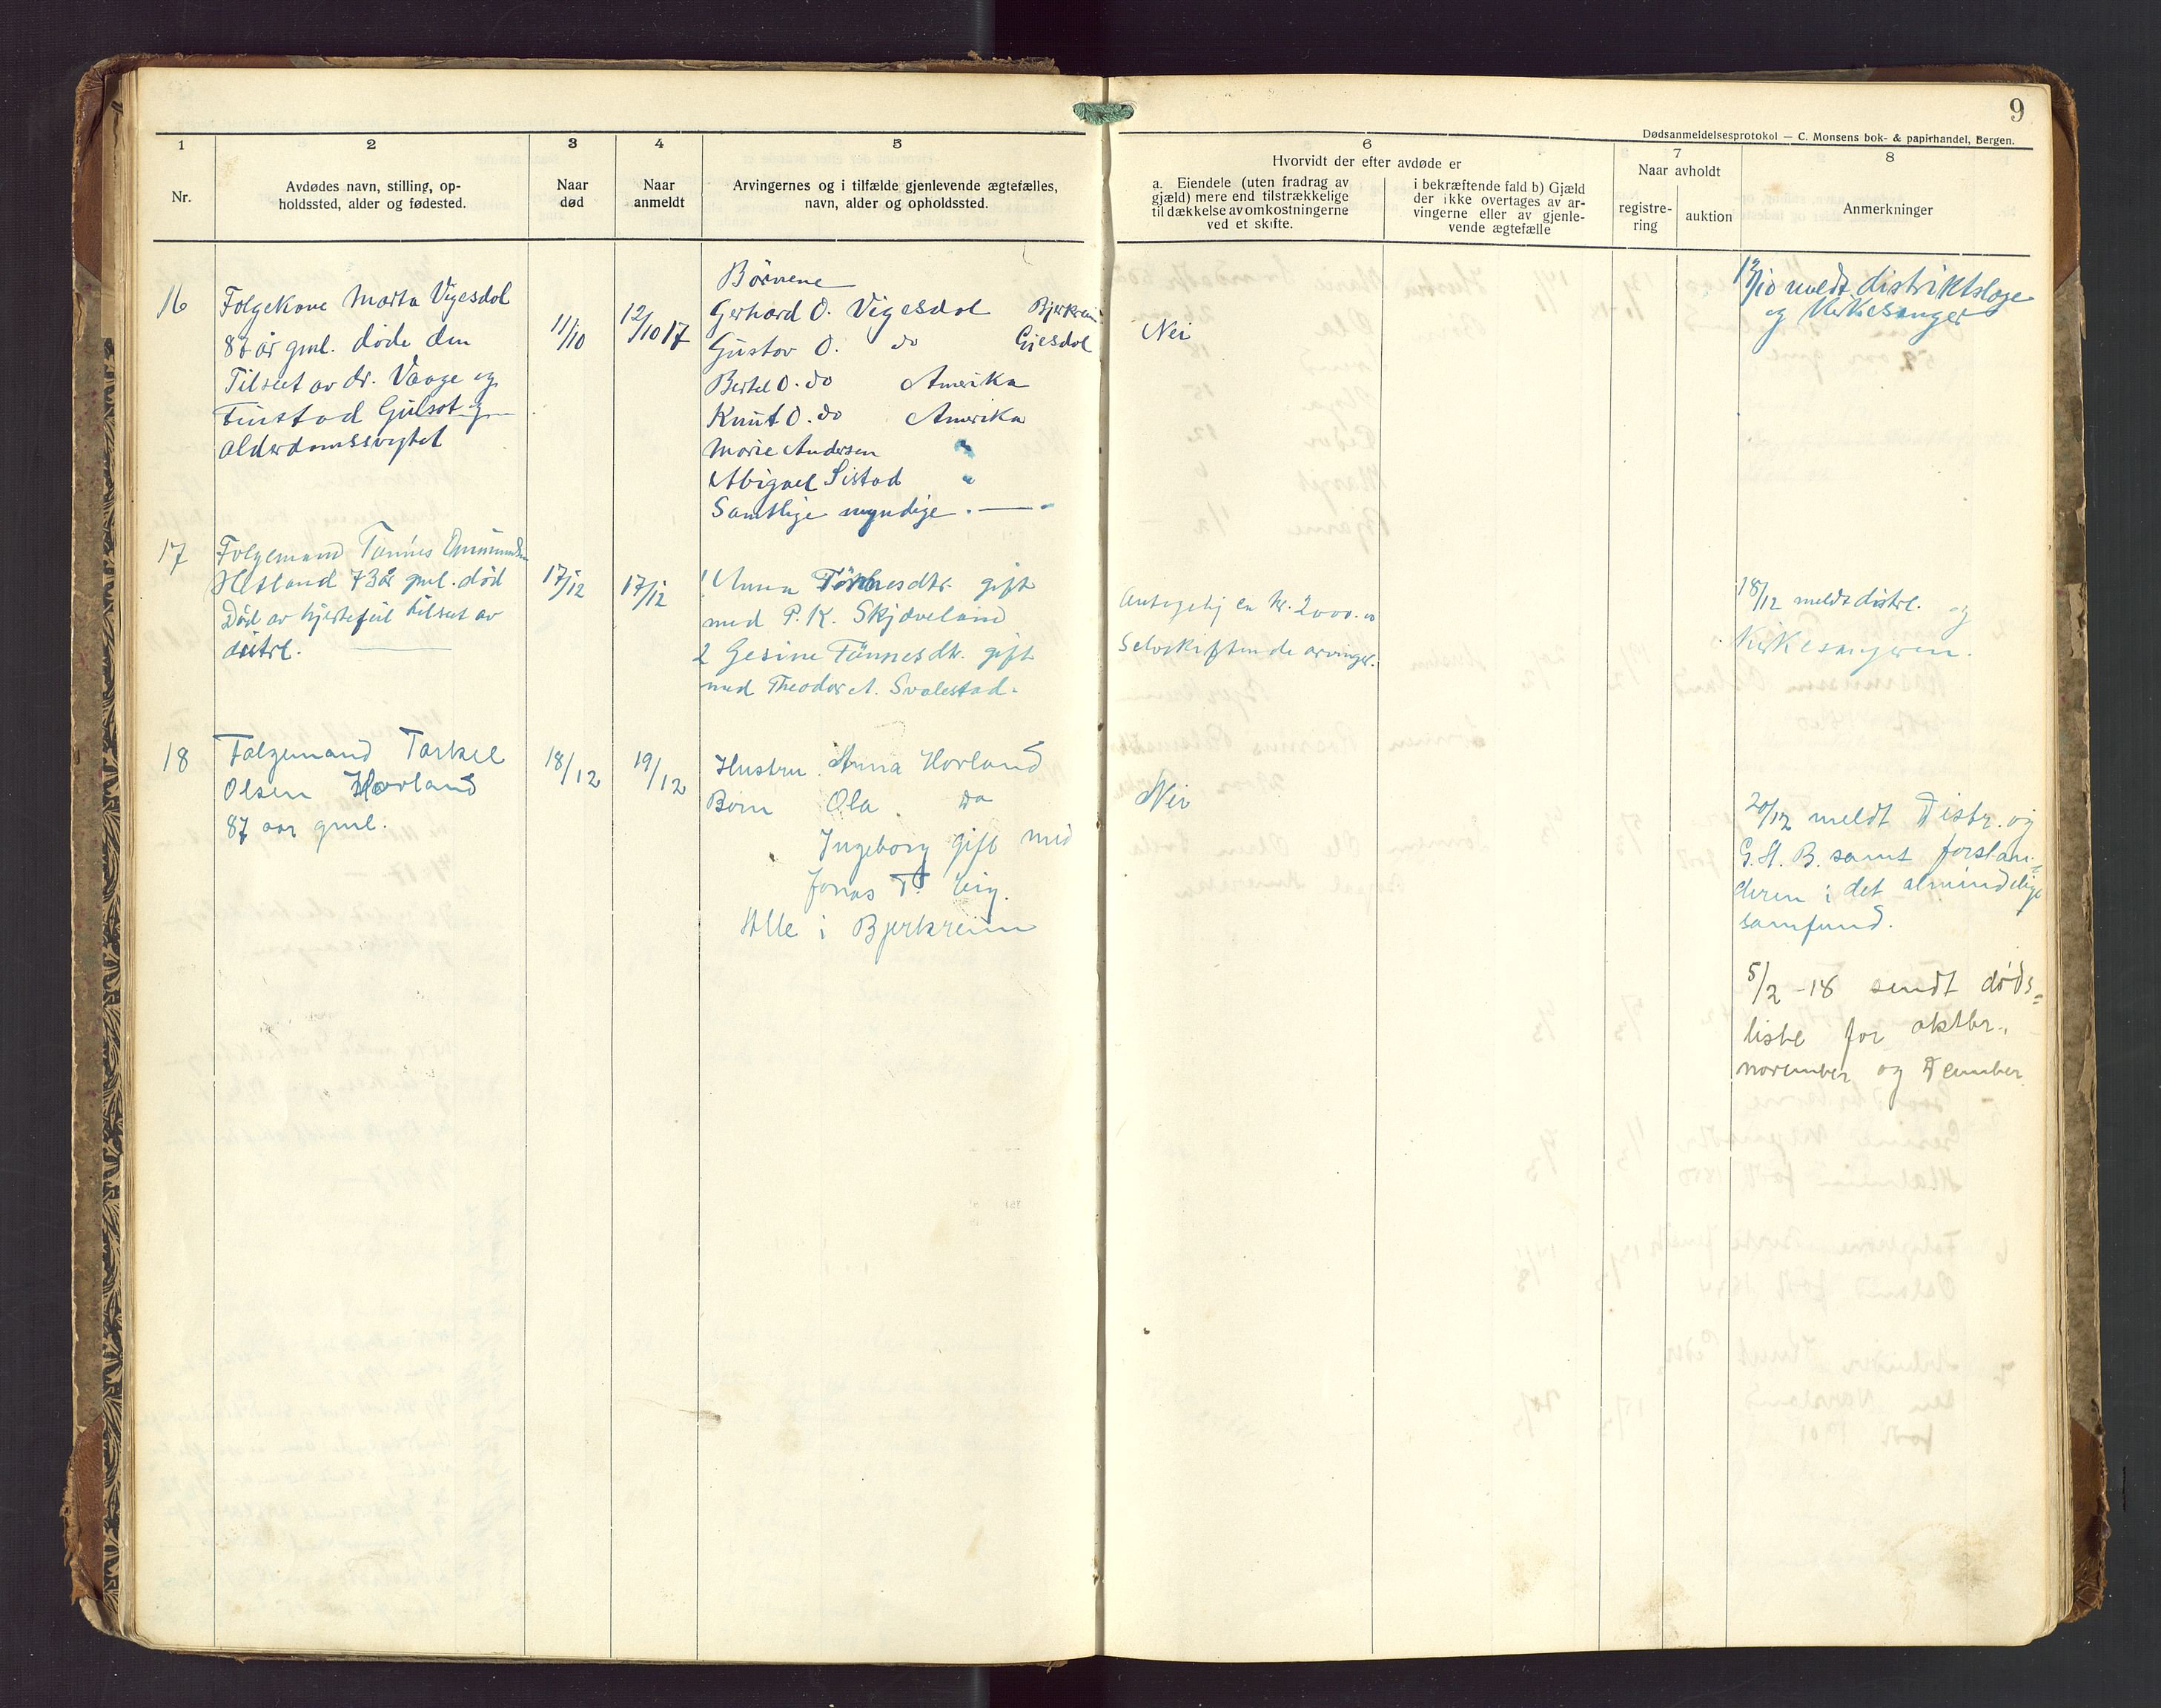 9
Dødsanmeldelsesprotokol — C. Monsens bok- & papirhandel, Bergen.
1
2
3
4
5
6
7
8
Nr.
Avdødes navn, stilling, op-
holdssted, alder og fødested.
Naar
død
Naar
anmeldt
Arvingernes og i tilfælde gjenlevende ægtefælles,
navn, alder og opholdssted.
Hvorvidt der efter avdøde er
a. Eiendele (uten fradrag av
gjæld) mere end tilstrækkelige
til dækkelse av omkostningerne
ved et skifte.
i bekræftende fald b) Gjæld
der ikke overtages av ar-
vingerne eller av gjenle-
vende ægtefælle
Naar avholdt
registre-
ring
auktion
Anmerkninger
16
Folgekone Marta Vigesdal
87 år gml. døde den
Tilseet av dr. Vaage og
Finstad Gulsot og
alderdomssvaghet
11/10
12/10 17
Børnene
Gerhard O. Vigesdal Bjerkreim
Gustav O. do Giesdal
Bertel O. do Amerika
Knut O. do Amerika
Marie Andersen "
Abigael Sistad "
Samtlige myndige . —
Nei
13/10 meldt distriktslæge
og Kirkesanger
17
Folgemand Tønnes Ommundsen
Hetland 73 år gml. død
Død av hjertefeil tilseet av
distrl.
17/12
17/12
1 Anna Tønnesdtr. gift
med P. K. Skjæveland
2 Gesine Tønnesdtr. gift
med Theodor A. Svalestad.
Antagelig en kr. 2000.00
Selvskiftende arvinger.
18/12 meldt distrl. og
Kirkesangeren.
18
Folgemand Torkel
Olsen Hovland
87 aar gml.
18/12
19/12
Hustru Anna Hovland
Børn Ola Do
Ingeborg gift med
Jonas T. Eig.
Alle i Bjerkreim
Nei
20/12 meldt Distr. og
G. H. B. samt forstan-
deren i det almindelige
samfund.
5/2 -18 sendt døds=
liste for oktbr.,
november og Dember